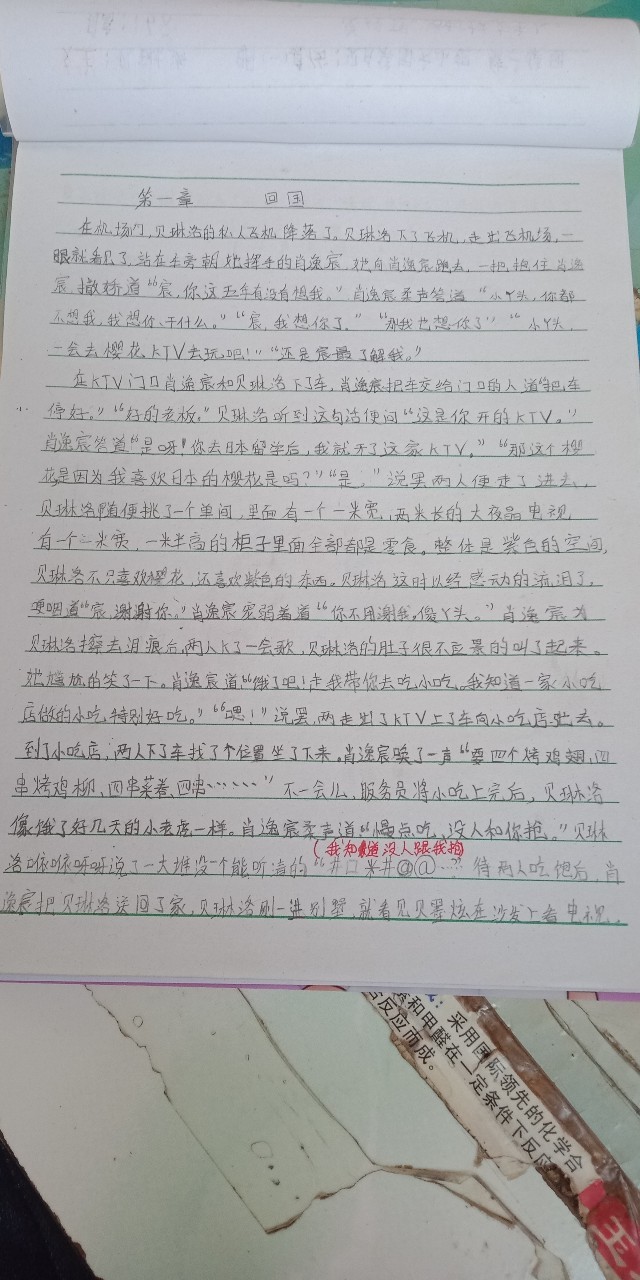 第一章 回国
在机场门,贝琳洛的私人飞机降落了。贝琳洛下了飞机,走出飞机场,一
眼就看见了站在车旁朝她挥手的肖逸宸,她向肖逸宸跑去,一把抱住肖逸
宸,撒娇道“宸,你这五年有没有想我。”肖逸宸柔声答道“小丫头,你都
不想我,我想你干什么。”“宸,我想你了。”“那我也想你了”“小丫头,
一会去樱花KTV去玩吧!”“还是宸最了解我。”
在KTV门口肖逸宸和贝琳洛下了车,肖逸宸把车交给门口的人道“把车
停好。”“好的老板。”贝琳洛听到这句话便问“这是你开的KTV。”
肖逸宸答道“是呀!你去日本留学后,我就开了这家KTV。”“那这个樱
花是因为我喜欢日本的樱花是吗?”“是。”说罢两人便走了进去,
贝琳洛随便挑了一个单间,里面有一个一米宽,两米长的大液晶电视
有一个二米宽,一米半高的柜子里面全部都是零食。整体是紫色的空间,
贝琳洛不只喜欢樱花,还喜欢紫色的东西。贝琳洛这时以经感动的流泪了,
哽咽道“宸,谢谢你。”肖逸宸宠弱着道“你不用谢我,傻丫头。”肖逸宸为
贝琳洛擦去泪痕后,两人K了一会歌,贝琳洛的肚子很不应景的叫了起来。
她尴尬的笑了一下。肖逸宸道“饿了吧!走我带你去吃小吃。我知道一家小吃
店做的小吃,特别好吃。”“嗯!”说罢,两走出了KTV上了车向小吃店驶去。
到了小吃店,两人下了车找了个位置坐了下来。肖逸宸唤了一声“要四个烤鸡翅,四
串烤鸡柳、四串菜卷、四串……”不一会儿,服务员将小吃上完后,贝琳洛
像饿了好几天的小老虎一样。肖逸宸柔声道“慢点吃,没人和你抢。”贝琳
(我知道没人跟我抢)
洛咿咿呀呀说了一大堆没一个能听清的“#口米#@@…”待两人吃饱后,肖
逸宸把贝琳洛送回了家,贝琳洛刚一进别墅,就看见贝墨炫在沙发上看电视。
采用国际领先的化学合
和甲醛在一定条件下反应
反应而成。
王